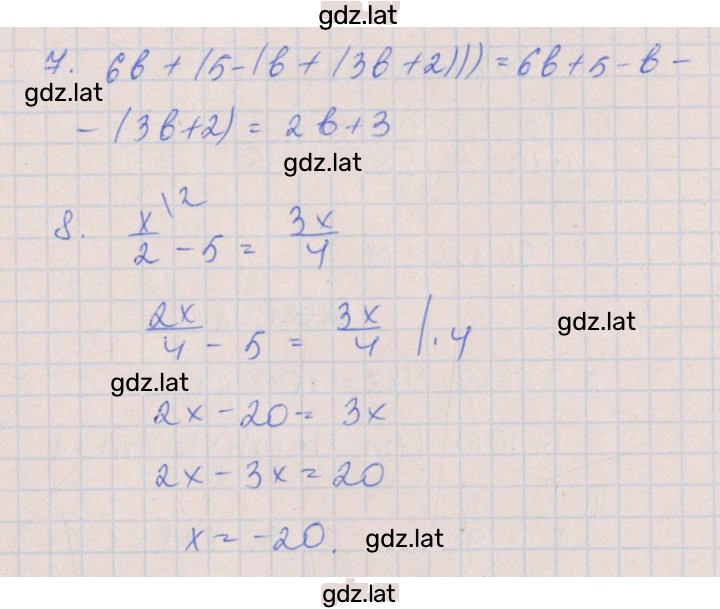 gdz.lat
7. 6в + (5-(в + (3в +2))) = 6в+5-в-
gdz.lat
- (3в+2) = 2в+3
gdz.lat
8. x/2 \2 - 5 = 3x/4
2x/4 - 5 = 3x/4 |·4
gdz.lat
gdz.lat
2x - 20 = 3x
2x - 3x = 20
x = -20.
gdz.lat
gdz.lat